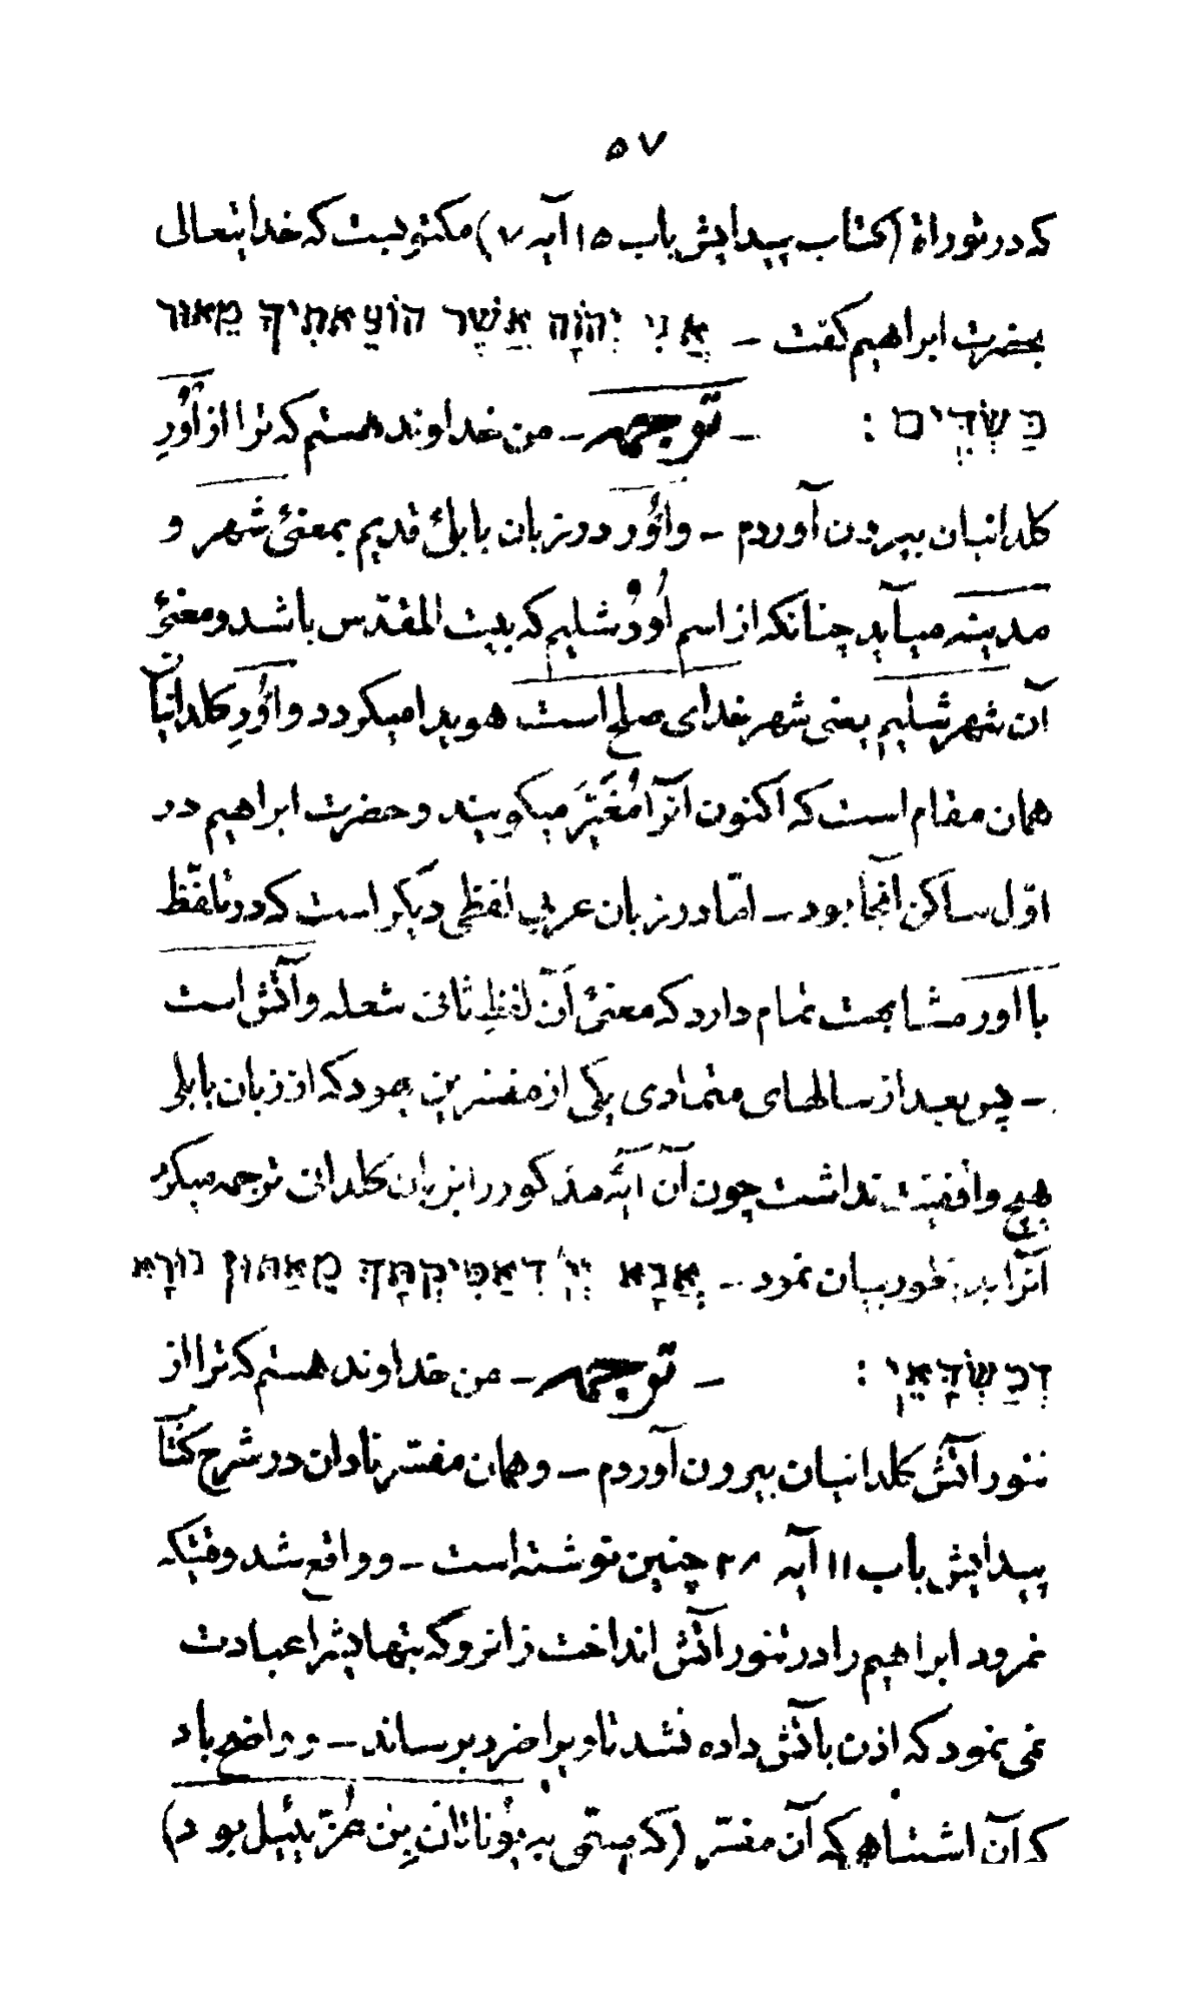 ۵۷
که در توراة (کتاب پیدایش باب ۱۵ آیه ۷) مکتوبست که خدایتعالی
بحضرت ابراهیم گفت – אֲנִי יְהוָֹה אֲשֶׁר הוֹצֵאתִיךָ מֵאוּר
כַּשְׂדִּים : – ترجمه – من خداوند هستم که ترا از اُورِ
کلدانیان بیرون آوردم – و اُور در زبان بابلئ قدیم بمعنئ شهر و
مدینه میآید چنانکه از اسم اُورُشلیم که بیت المقدّس باشد و معنئ
آن شهر شلیم یعنی شهر خدای صلح است هویدا میگردد و اُورِ کلدانیان
همان مقام است که اکنون آنرا مُغَیَّر میگویند و حضرت ابراهیم در
اوّل ساکن آنجا بود – امّا در زبان عربی لفظی دیگر است که در تلفّظ
با اور مشابهت تمام دارد که معنئ آن لفظِ ثانی شعله و آتش است
– پس بعد از سالهای متمادی یکی از مفسّرین یهود که از زبان بابلی
هیچ واقفیّت نداشت چون آن آیهٔ مذکور را بزبان کلدانی ترجمه میکرد
آنرا بدینطور بیان نمود – אֲנָא יְיָ דְאַפֵּיקְתָּךְ מֵאַתּוּן נוּרָא
דְכַשְׂדָּאֵי : – ترجمه – من خداوند هستم که ترا از
تنور آتش کلدانیان بیرون آوردم – و همان مفسّر نادان در شرح کتاب
پیدایش باب ۱۱ آیه ۲۸ چنین نوشته است – و واقع شد وقتیکه
نمرود ابراهیم را در تنور آتش انداخت زانرو که بتهایشرا عبادت
نمی نمود که اذن بآتش داده نشد تا ویرا ضرر برساند – و واضح باد
که آن اشتباه که آن مفسّر (که مسمّی به یُوناتان بِن عُزّیئیل بود)